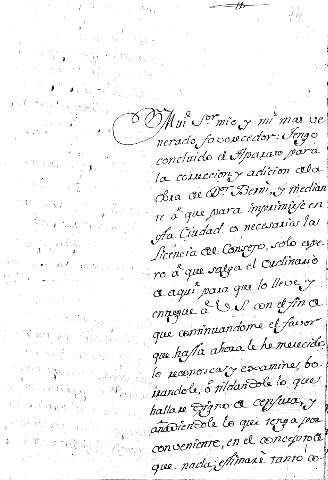 Mui Sor mio y mi mas ve
nerado favorecedor: Tengo
concluido el Aparato para
la correccion y adicion a la
obra de Dn Berni, y median
te a que para imprimirse en
esta Ciudad es necesaria la
licencia de Consejo, solo espe
ro a que salga el ordinario
de aqui para que lo lleve y
entregue a V. S. con el fin de
que continuandome el favor
que hasta ahora le he merecido,
lo reconozca y examine, bo
rrandole, o tildandole lo que
hallare digno de censura, y
añadiendole lo que tenga por
conveniente, en el concepto de
que nada estimare tanto co